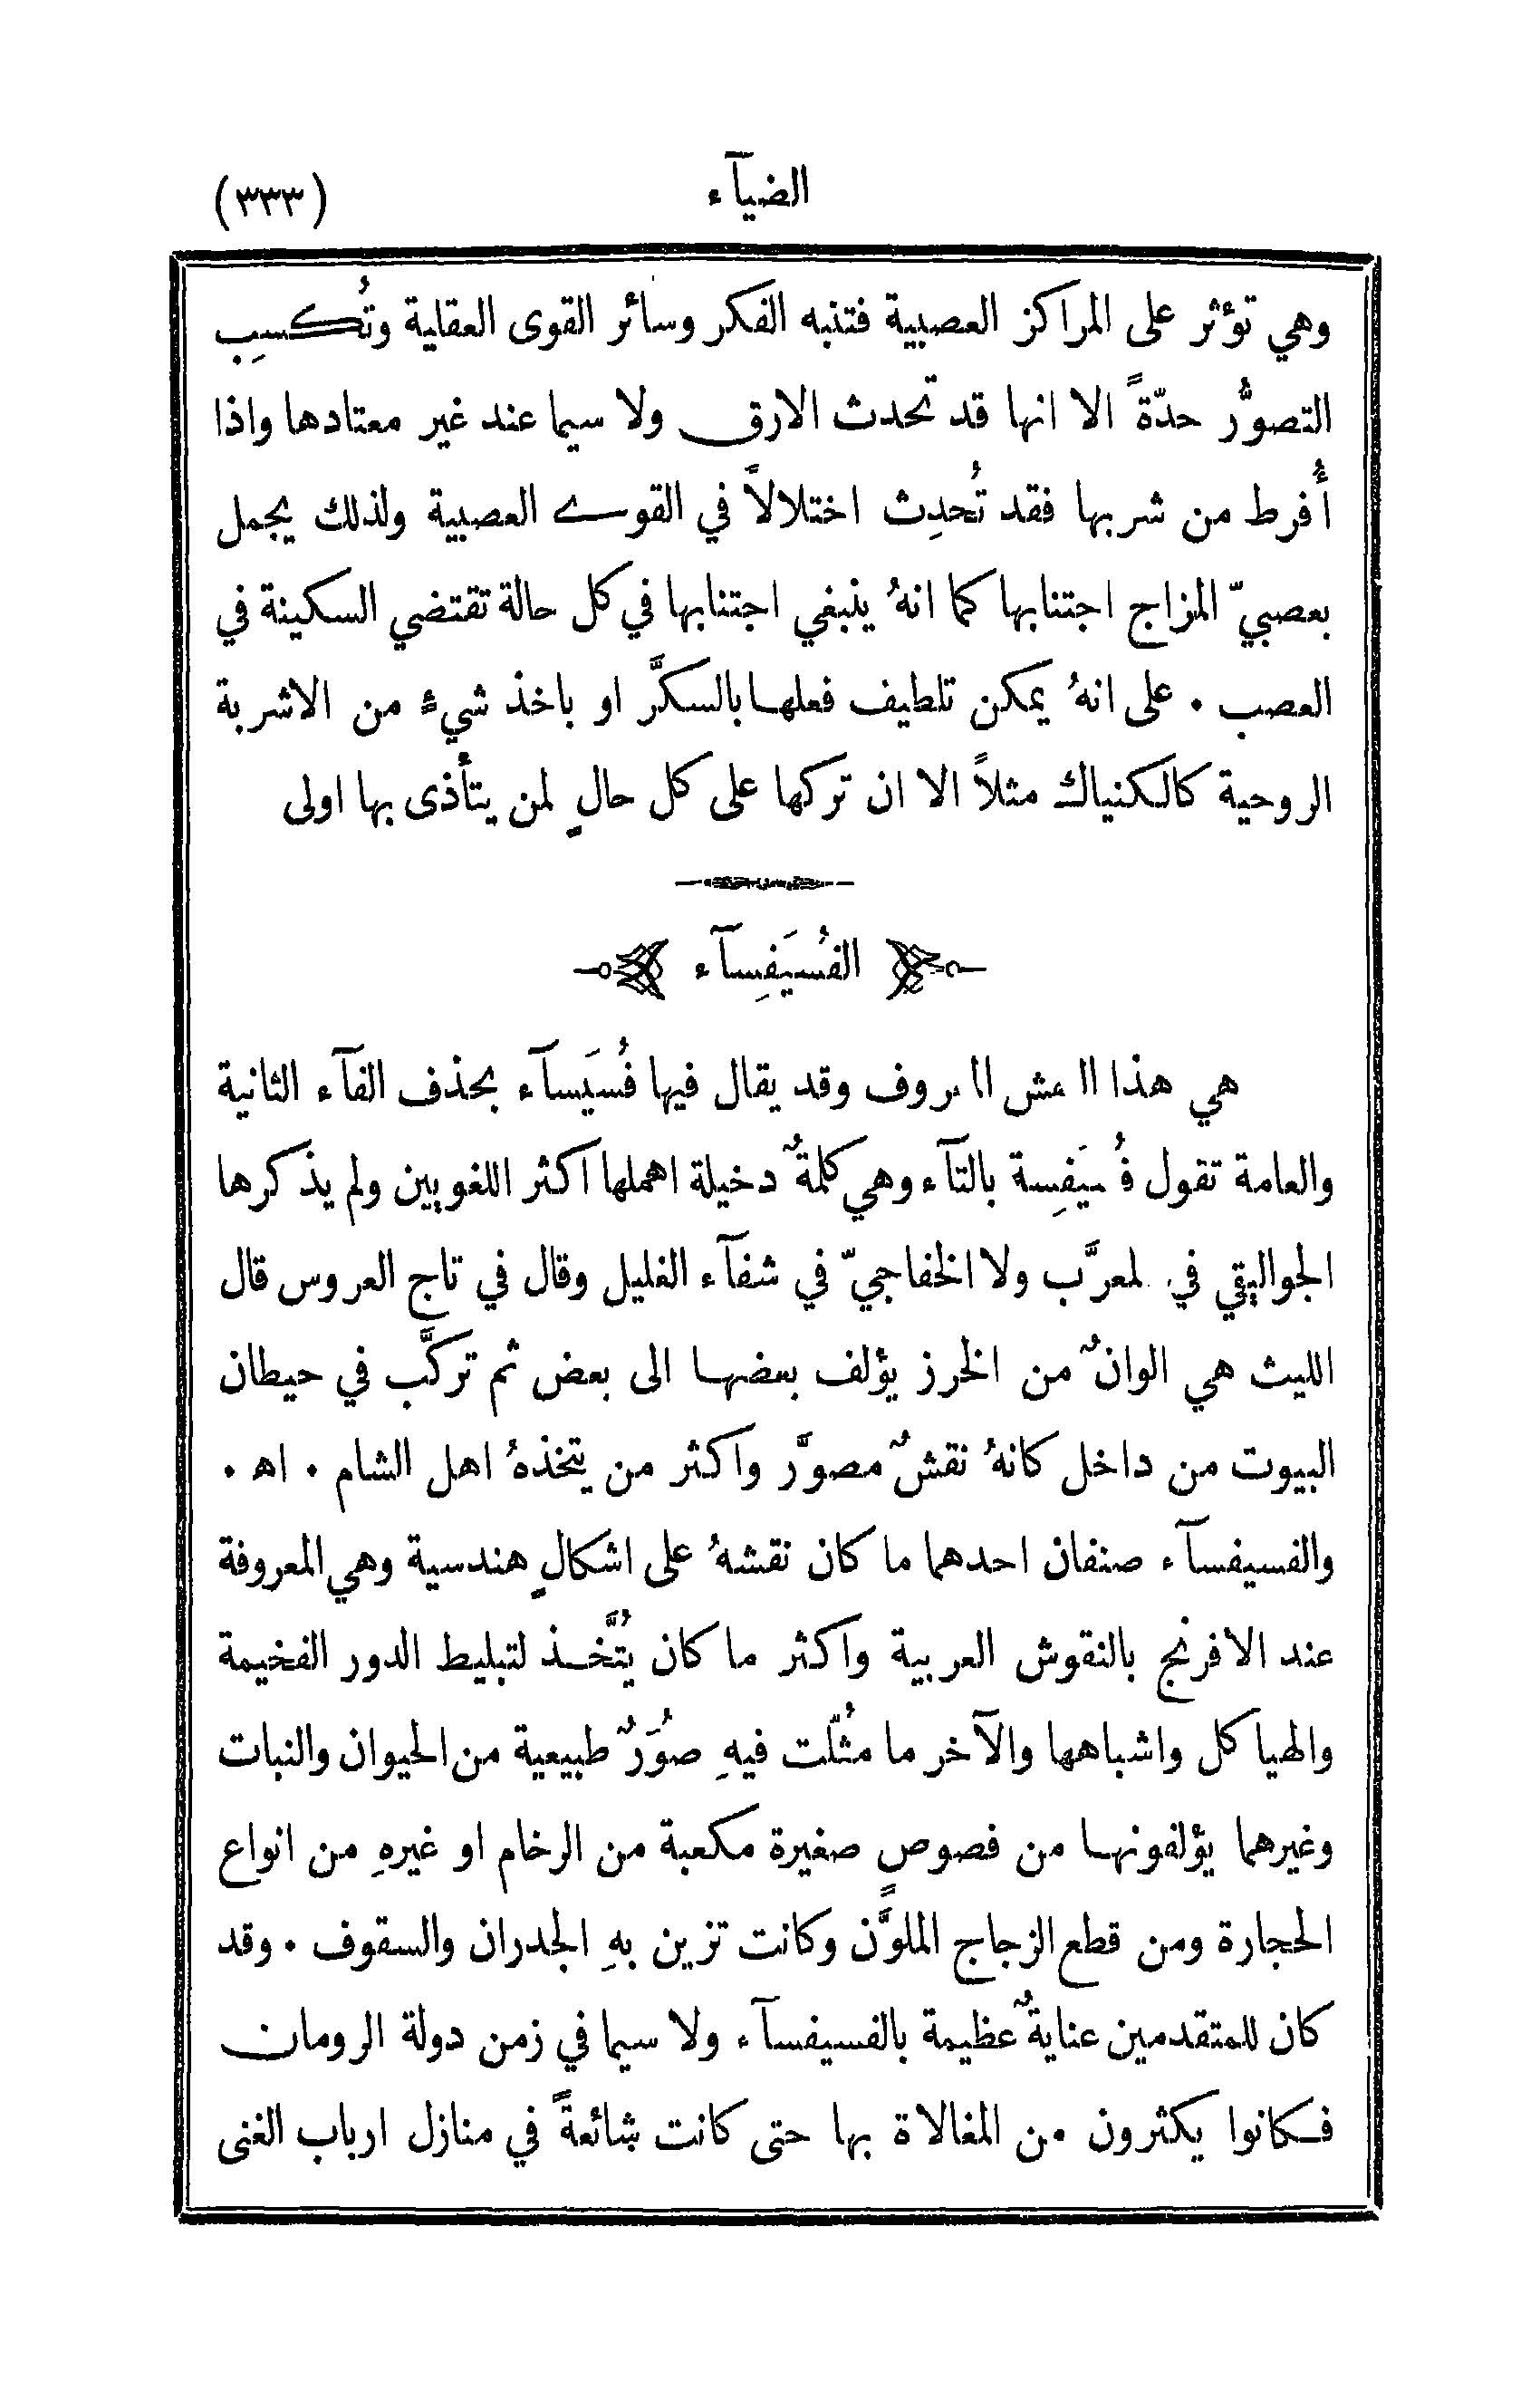 الضيآء
(٣٣٣)
وهي تؤثر على المراكز العصبية فتنبه الفكر وسائر القوى العقلية وتُكسِب
التصوُّر حدّةً الا انها قد تحدث الارق ولا سيما عند غير معتادها واذا
أُفرط من شربها فقد تُحدِث اختلالاً في القوى العصبية ولذلك يجمل
بعصبيّ المزاج اجتنابها كما انهُ ينبغي اجتنابها في كل حالة تقتضي السكينة في
العصب ٠ على انهُ يمكن تلطيف فعلها بالسكَّر او باخذ شيءٍ من الاشربة
الروحية كالكنياك مثلاً الا ان تركها على كل حالٍ لمن يتأذى بها اولى
الفُسَيفِسآء
هي هذا وقد يقال فيها فُسَيسآء بحذف الفآء الثانية
والعامة تقول فُسَيفِسة بالتآء وهي كلمةٌ دخيلة اهملها اكثر اللغويين ولم يذكرها
الجواليقي في المعرَّب ولا الخفاجيّ في شفآء الغليل وقال في تاج العروس قال
الليث هي الوانٌ من الخرز يؤلف بعضها الى بعض ثم تركَّب في حيطان
البيوت من داخل كانهُ نقشٌ مصوَّر واكثر من يتخذهُ اهل الشام ٠ اه ٠
والفسيفسآء صنفان احدهما ما كان نقشهُ على اشكالٍ هندسية وهي المعروفة
عند الافرنج بالنقوش العربية واكثر ما كان يُتَّخذ لتبليط الدور الفخيمة
والهياكل واشباهها والآخر ما مُثّلت فيهِ صُوَرٌ طبيعية من الحيوان والنبات
وغيرهما يؤلفونها من فصوصٍ صغيرة مكعبة من الرخام او غيرهِ من انواع
الحجارة ومن قطع الزجاج الملوَّن وكانت تزين بهِ الجدران والسقوف ٠ وقد
كان للمتقدمين عنايةٌ عظيمة بالفسيفسآء ولا سيما في زمن دولة الرومان
فكانوا يكثرون من المغالاة بها حتى كانت شائعةً في منازل ارباب الغنى